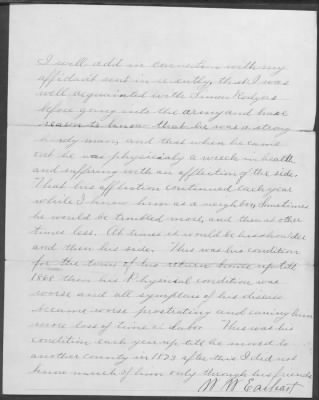 I will add in connection with my
affidavit sent in recently, that I was
well acquainted with Simon Rodgers
before going into the army and have
reason to know that he was a strong
hardy man, and that when he came
out he was physicialy a wreck in health
and suffring with an affliction of the side.
That his affliction continued each year
while I knew him as a neighbor, sometimes
he would be troubled more, and then at other
times less. At times it would be his shoulder
and then his side. This was his condition
for the term of his return home up till
1868 then his Physical condition was
worse and all symptoms of his disease
became worse prostrating and causing him
more loss of time & labor. This was his
condition each year up till he moved to
another county in 1873 after this I did not
know much of him only through his friends
W W Earhart